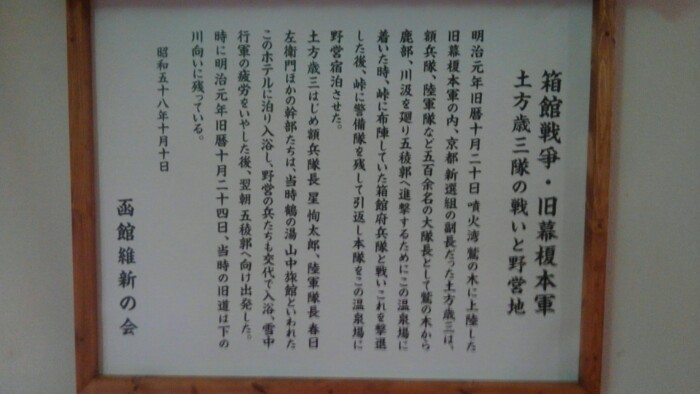 箱館戦争・旧幕榎本軍
土方歳三隊の戦いと野営地
明治元年旧暦十月二十日 噴火湾 鷲の木に上陸した
旧幕榎本軍の内、京都 新選組の副長だった土方歳三は、
額兵隊、陸軍隊など五百余名の大隊長として鷲の木から
鹿部、川汲を廻り五稜郭へ進撃するためにこの温泉場に
着いた時、峠に布陣していた箱館府兵隊と戦いこれを撃退
した後、峠に警備隊を残して引返し本隊をこの温泉場に
野営宿泊させた。
土方歳三はじめ額兵隊長 星 恂太郎、陸軍隊長 春日
左衛門ほかの幹部たちは、当時鶴の湯 山中旅館といわれた
このホテルに泊り入浴し、野営の兵たちも交代で入浴、雪中
行軍の疲労をいやした後、翌朝 五稜郭へ向け出発した。
時に明治元年旧暦十月二十四日、当時の旧道は下の
川向いに残っている。
昭和五十八年十月十日
函館維新の会